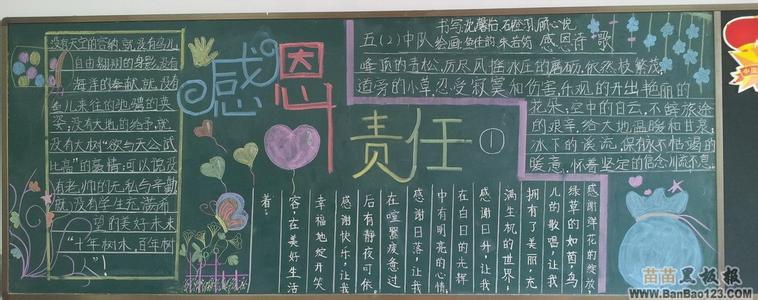 没有天空的容纳,就没有鸟儿
自由翱翔的身影,没有
海洋的奉献就,没有
鱼儿来往的驰骋的英
姿,没有大地的给予,就
没有大树“欲与天公试
比高”的豪情;可以说没
有老师的无私与辛勤
就没有学生充满希
望的美好未来
“十年树木,百年树
人”!
感恩
责任
①
书写:沈馨怡
五(2)中队 绘画: 朱若筠 感恩诗歌
峰顶的青松,历尽风摧冰压的磨砺,依然枝繁茂,
道旁的小草忍受寂寞和伤害,乐观的开出艳丽的
花朵;空中的白云,不辞旅途
的艰辛,给大地温暖和甘泉,
冰下的溪流,深耐不枯竭的
暖意,怀着坚定的信念川流不息。
感谢鲜花的绽放,
绿草的如茵,鸟
儿的歌唱,让我
拥有了美丽,充
满生机的世界,
感谢日升,让我
在白日的光辉
中有明亮的心情,
感谢日落,让我
在喧嚣疲惫过
后有静夜可依。
感谢快乐,让我
幸福地绽开笑
容,在美好生活
着。
苗苗黑板报
www.BanBao123.com